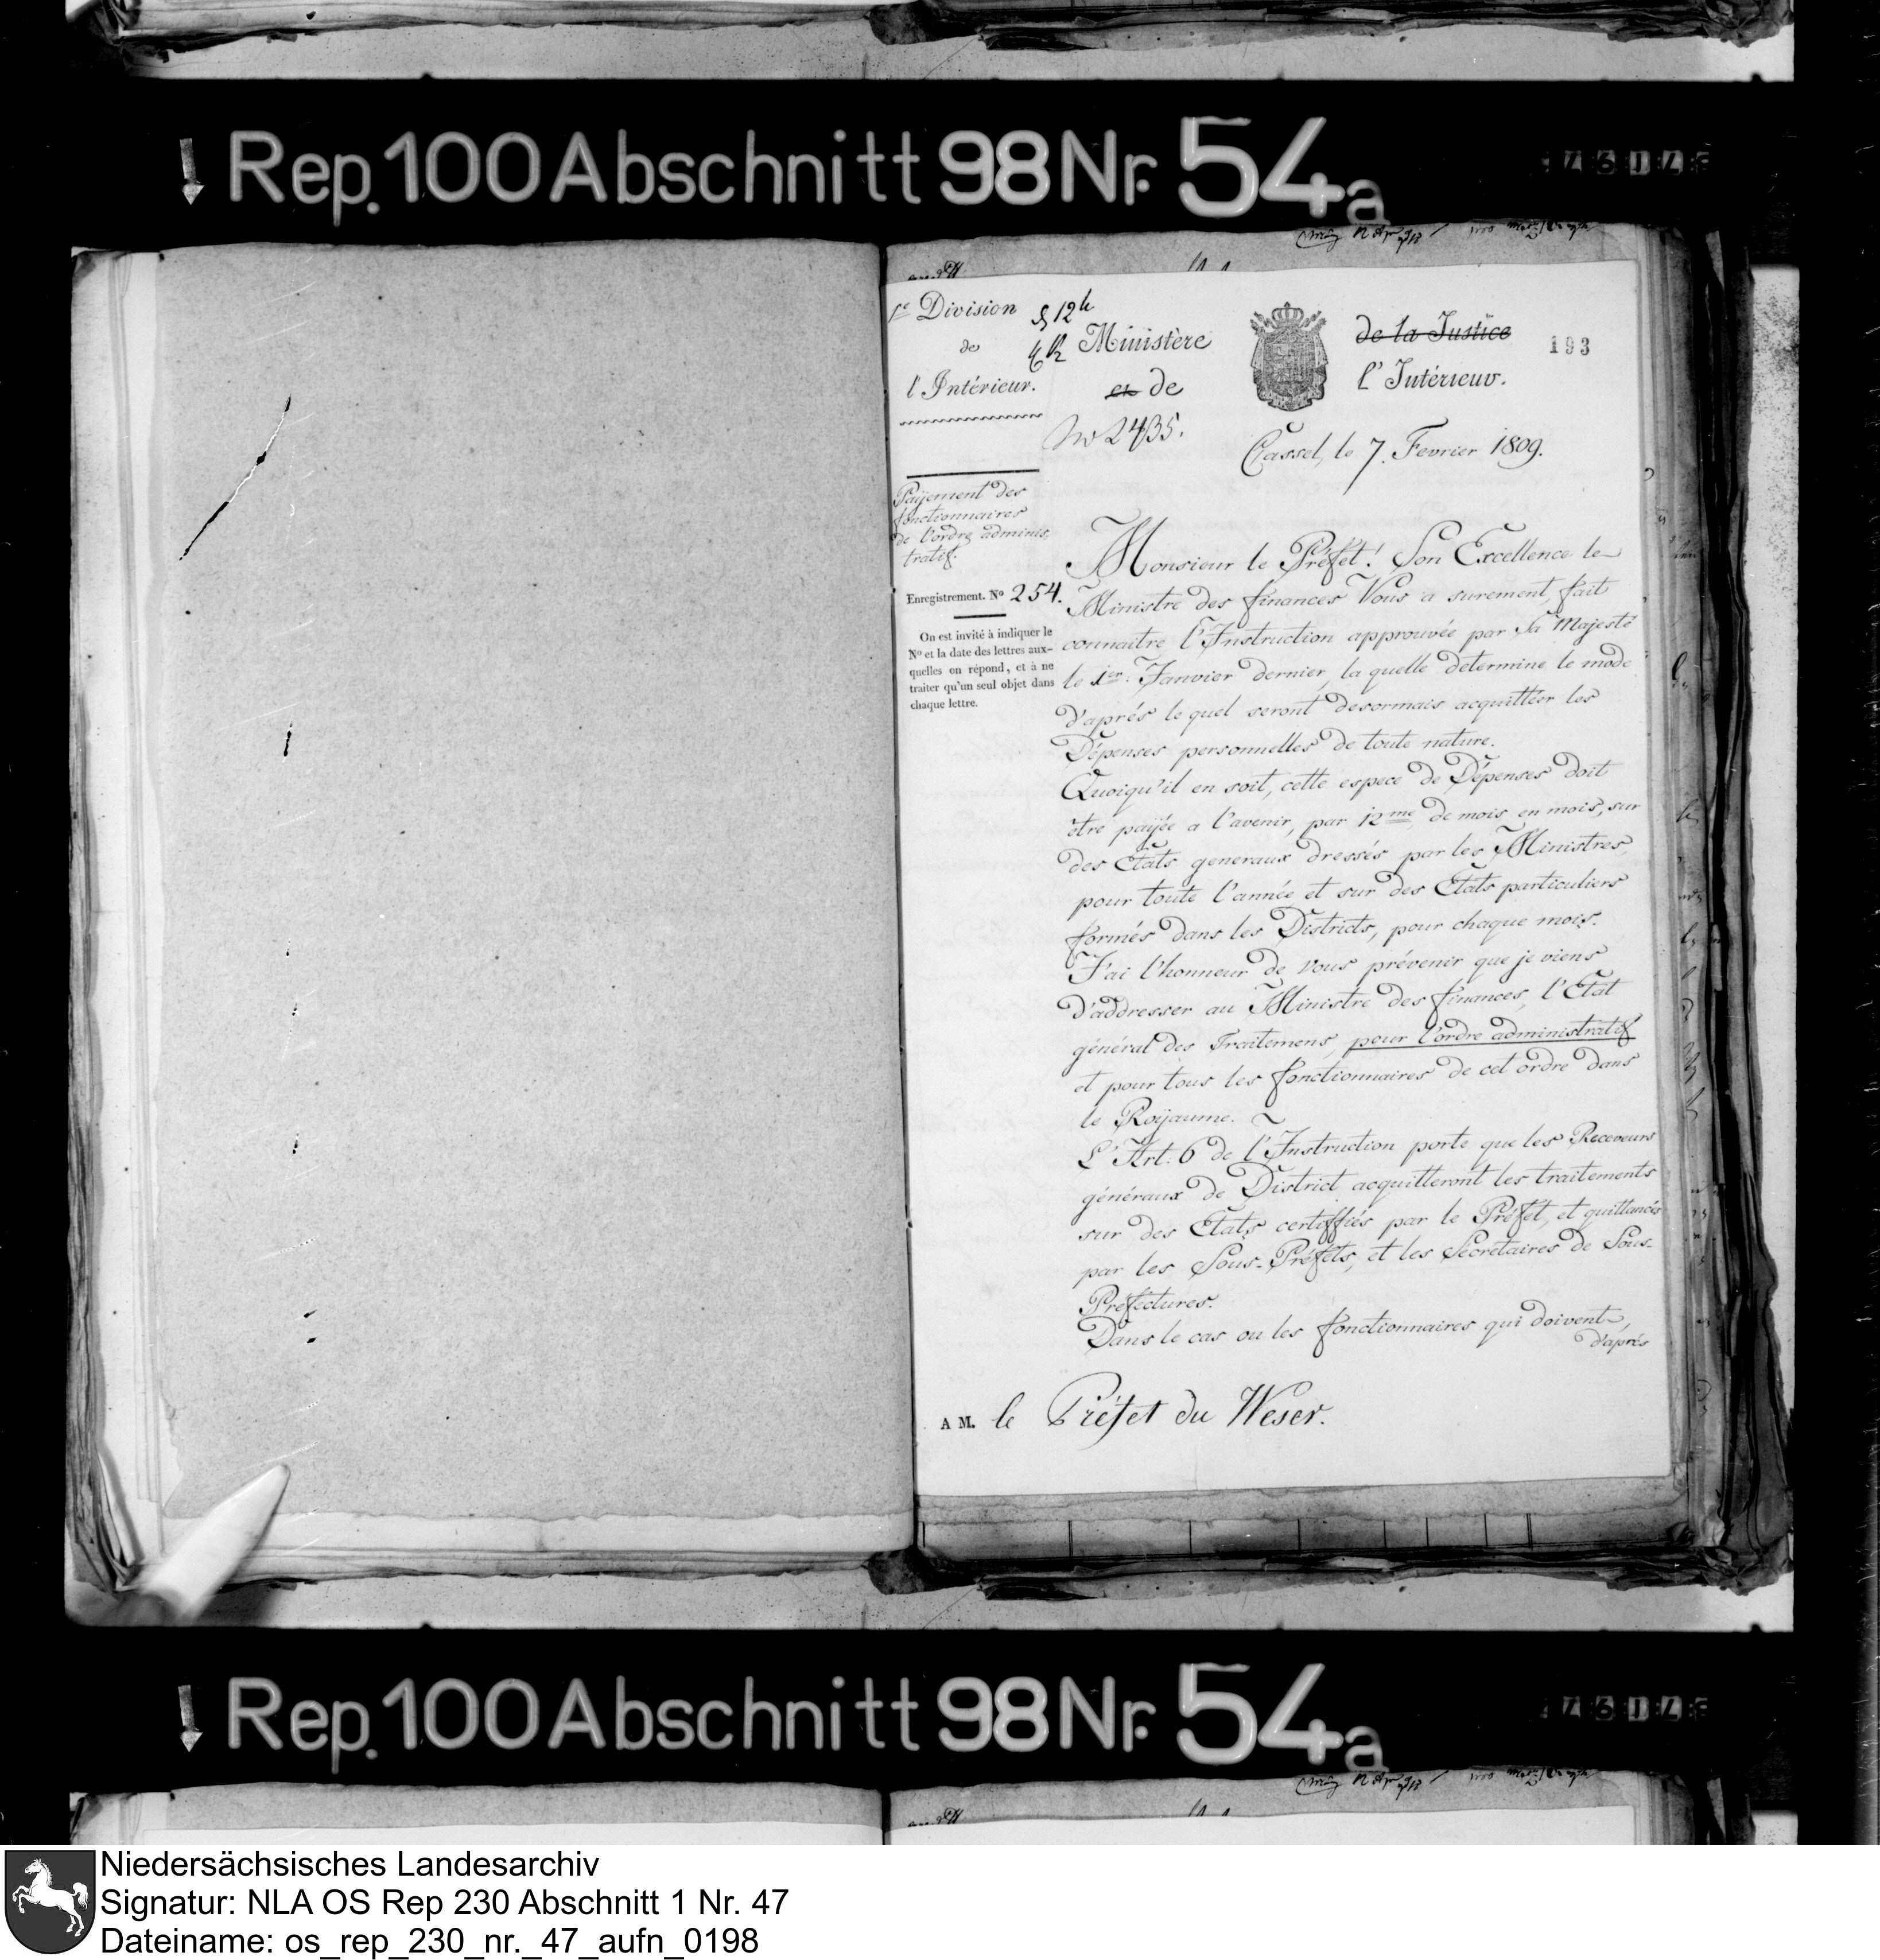 Rep. 100 Abschnitt 98 Nr. 54a
1e Division
de
l'Intérieur.
Ministère
et de
de la Justice
l'Intérieur.
193
No 2435.
Cassel, le 7. Fevrier 1809.
Payement des
fonctionnaires
de l'ordre adminis,
tratif.
Enregistrement. No 254.
On est invité à indiquer le
No et la date des lettres aux-
quelles on répond, et à ne
traiter qu'un seul objet dans
chaque lettre.
Monsieur le Préfet! Son Excellence le
Ministre des finances Vous a surement fait
connaitre l'Instruction approuvée par Sa Majesté
le 1er. Janvier dernier, la quelle determine le mode
d'aprés le quel seront desormais acquittéer les
Dépenses personnelles de toute nature.
Quoiqu'il en soit, cette espece de Dépenses doit
être payée a l'avenir, par 12me de mois en mois, sur
des Etats generaux dressés par les Ministres,
pour toute l'année et sur des Etats particuliers
formés dans les Districts, pour chaque mois.
J'ai l'honneur de vous prévenir que je viens
d'addresser au Ministre des finances, l'Etat
général des Traitemens, pour l'ordre administratif
et pour tous les fonctionnaires de cet ordre dans
le Royaume.
L'Art. 6 de l'Instruction porte que les Receveurs
généraux de District acquitteront les traitements
sur des Etats certiffiés par le Préfet, et quittancés
par les Sous-Préfets, et les Secretaires de Sous-
Préfectures.
Dans le cas ou les fonctionnaires qui doivent,
d'aprés
A M. le Préfet du Weser.
Rep. 100 Abschnitt 98 Nr. 54a
Niedersächsisches Landesarchiv
Signatur: NLA OS Rep 230 Abschnitt 1 Nr. 47
Dateiname: os_rep_230_nr._47_aufn_0198